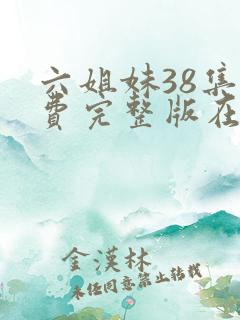 六姐妹38集
费完整版在
金漢林
未经同意禁止转载